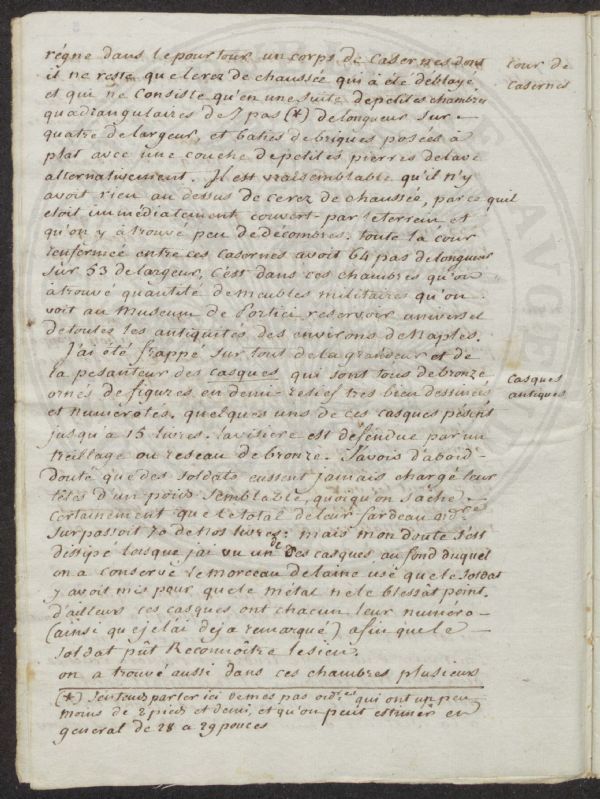 régne dans le pourtour un corps de Casernes dont
il ne reste que le rez de chaussée qui à été déblayé
et qui ne Consiste qu'en une suite de petites chambres
quadrangulaires de 7 pas (*) de longueur sur
quatre de largeur, et baties de briques posées à
plat avec une couche de petites pierres de lave
alternativement. Il est vraisemblable qu'il n'y
avoit rien au dessus de ce rez de chaussée, parce qu'il
etoit immédiatement couvert par le terrein et
qu'on y à trouvé peu de décombres. toute la cour
renfermée entre ces Casernes avoit 64 pas de longueur
sur 53 de largeur, C'est dans ces chambres qu'on
à trouvé quantité de meubles militaires qu'on
voit au Museum de Portici reservoir universel
de toutes les antiquités des environs de Naples.
J'ai été frappé sur tout de la grandeur et de
la pesanteur des casques qui sont tous de bronze
ornés de figures en demie relief tres bien dessinées
et numérotés. quelques uns de ces casques pesent
jusqu'à 15 livres. la visiere est défendue par un
treillage ou reseau de bronze. J'avois d'abord
douté que des soldats eussent jamais chargé leur
têtes d'un poids semblable, quoiqu'on sache
certainement que le total de leur fardeau ordre
surpassoit 70 de nos livres: mais mon doute s'est
dissipé lorsque j'ai vu un de ces casques au fond duquel
on a conservé le morceau de laine usé que le soldat
y avoit mis pour que le métal ne le blessât point.
d'ailleurs ces casques ont chacun leur numéro
(ainsi que je l'ai deja remarqué) afin que le
soldat pût Reconnoitre le sien.
on a trouvé aussi dans ces chambres plusieurs
(*) J'entends parler ici de mes pas ordres qui ont un peu
moins de 2 pieds et demi, et qu'on peut estimer en
general de 28 a 29 pouces
Cour de
Casernes
Casques
antiques